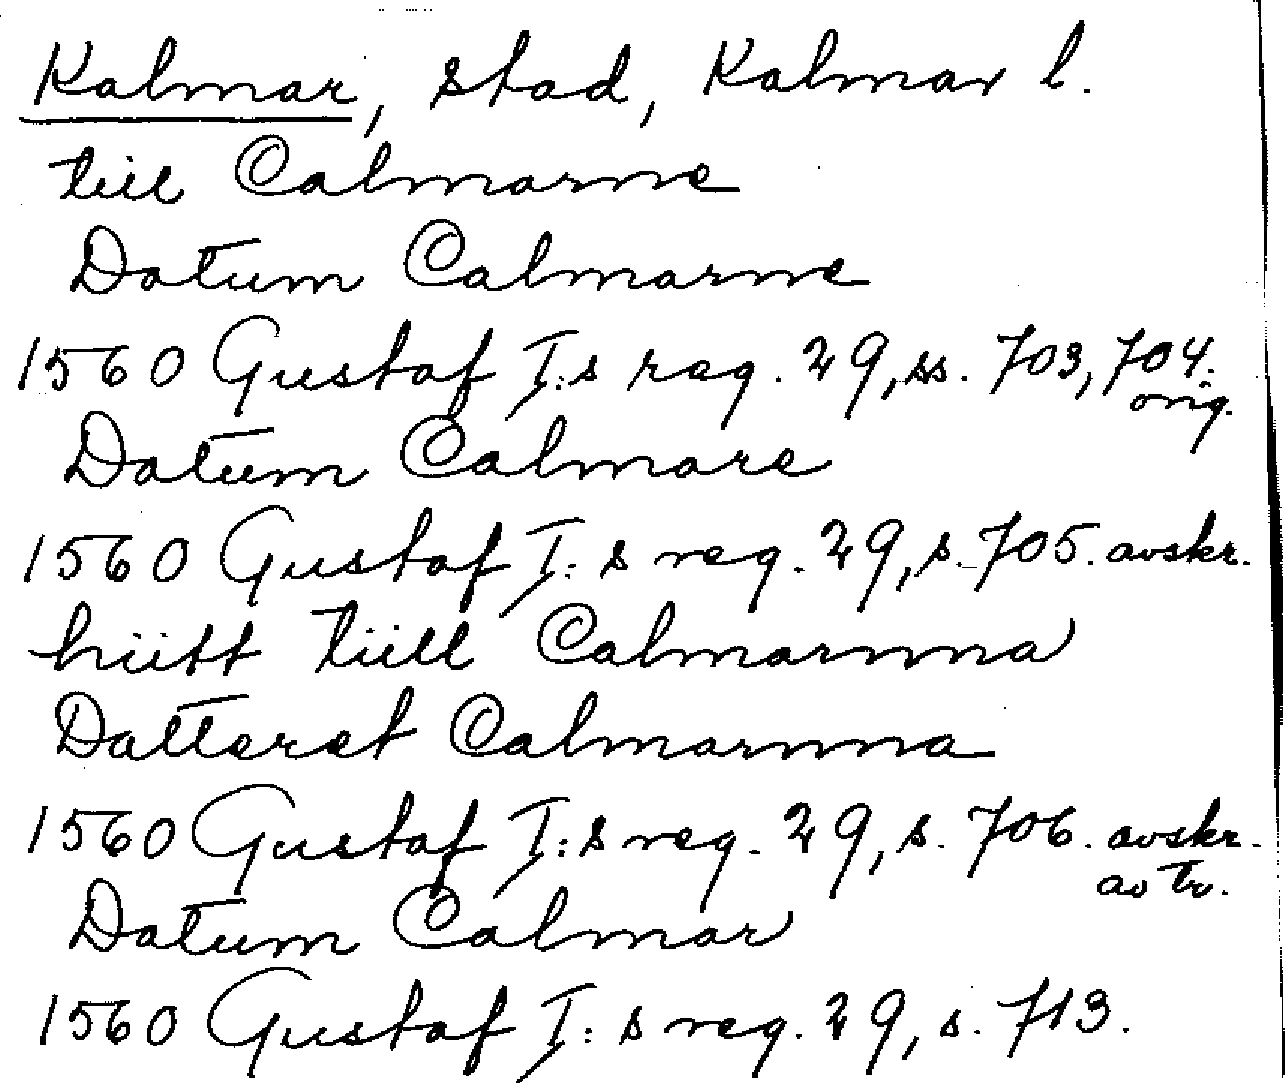 Kalmar, stad, Kalmar l.
tiil Calmarne
Datum Calmarne
1560 Gustaf I:s reg. 29, ss. 703, 704.
orig.
Datum Calmare
1560 Gustaf I:s reg. 29, s. 705. avskr.
hiitt tiill Calmarnna
Datteret Calmarnna
1560 Gustaf I:s reg. 29, s. 706. avskr.
av tr.
Datum Calmar
1560 Gustaf I:s reg. 29, s. 713.